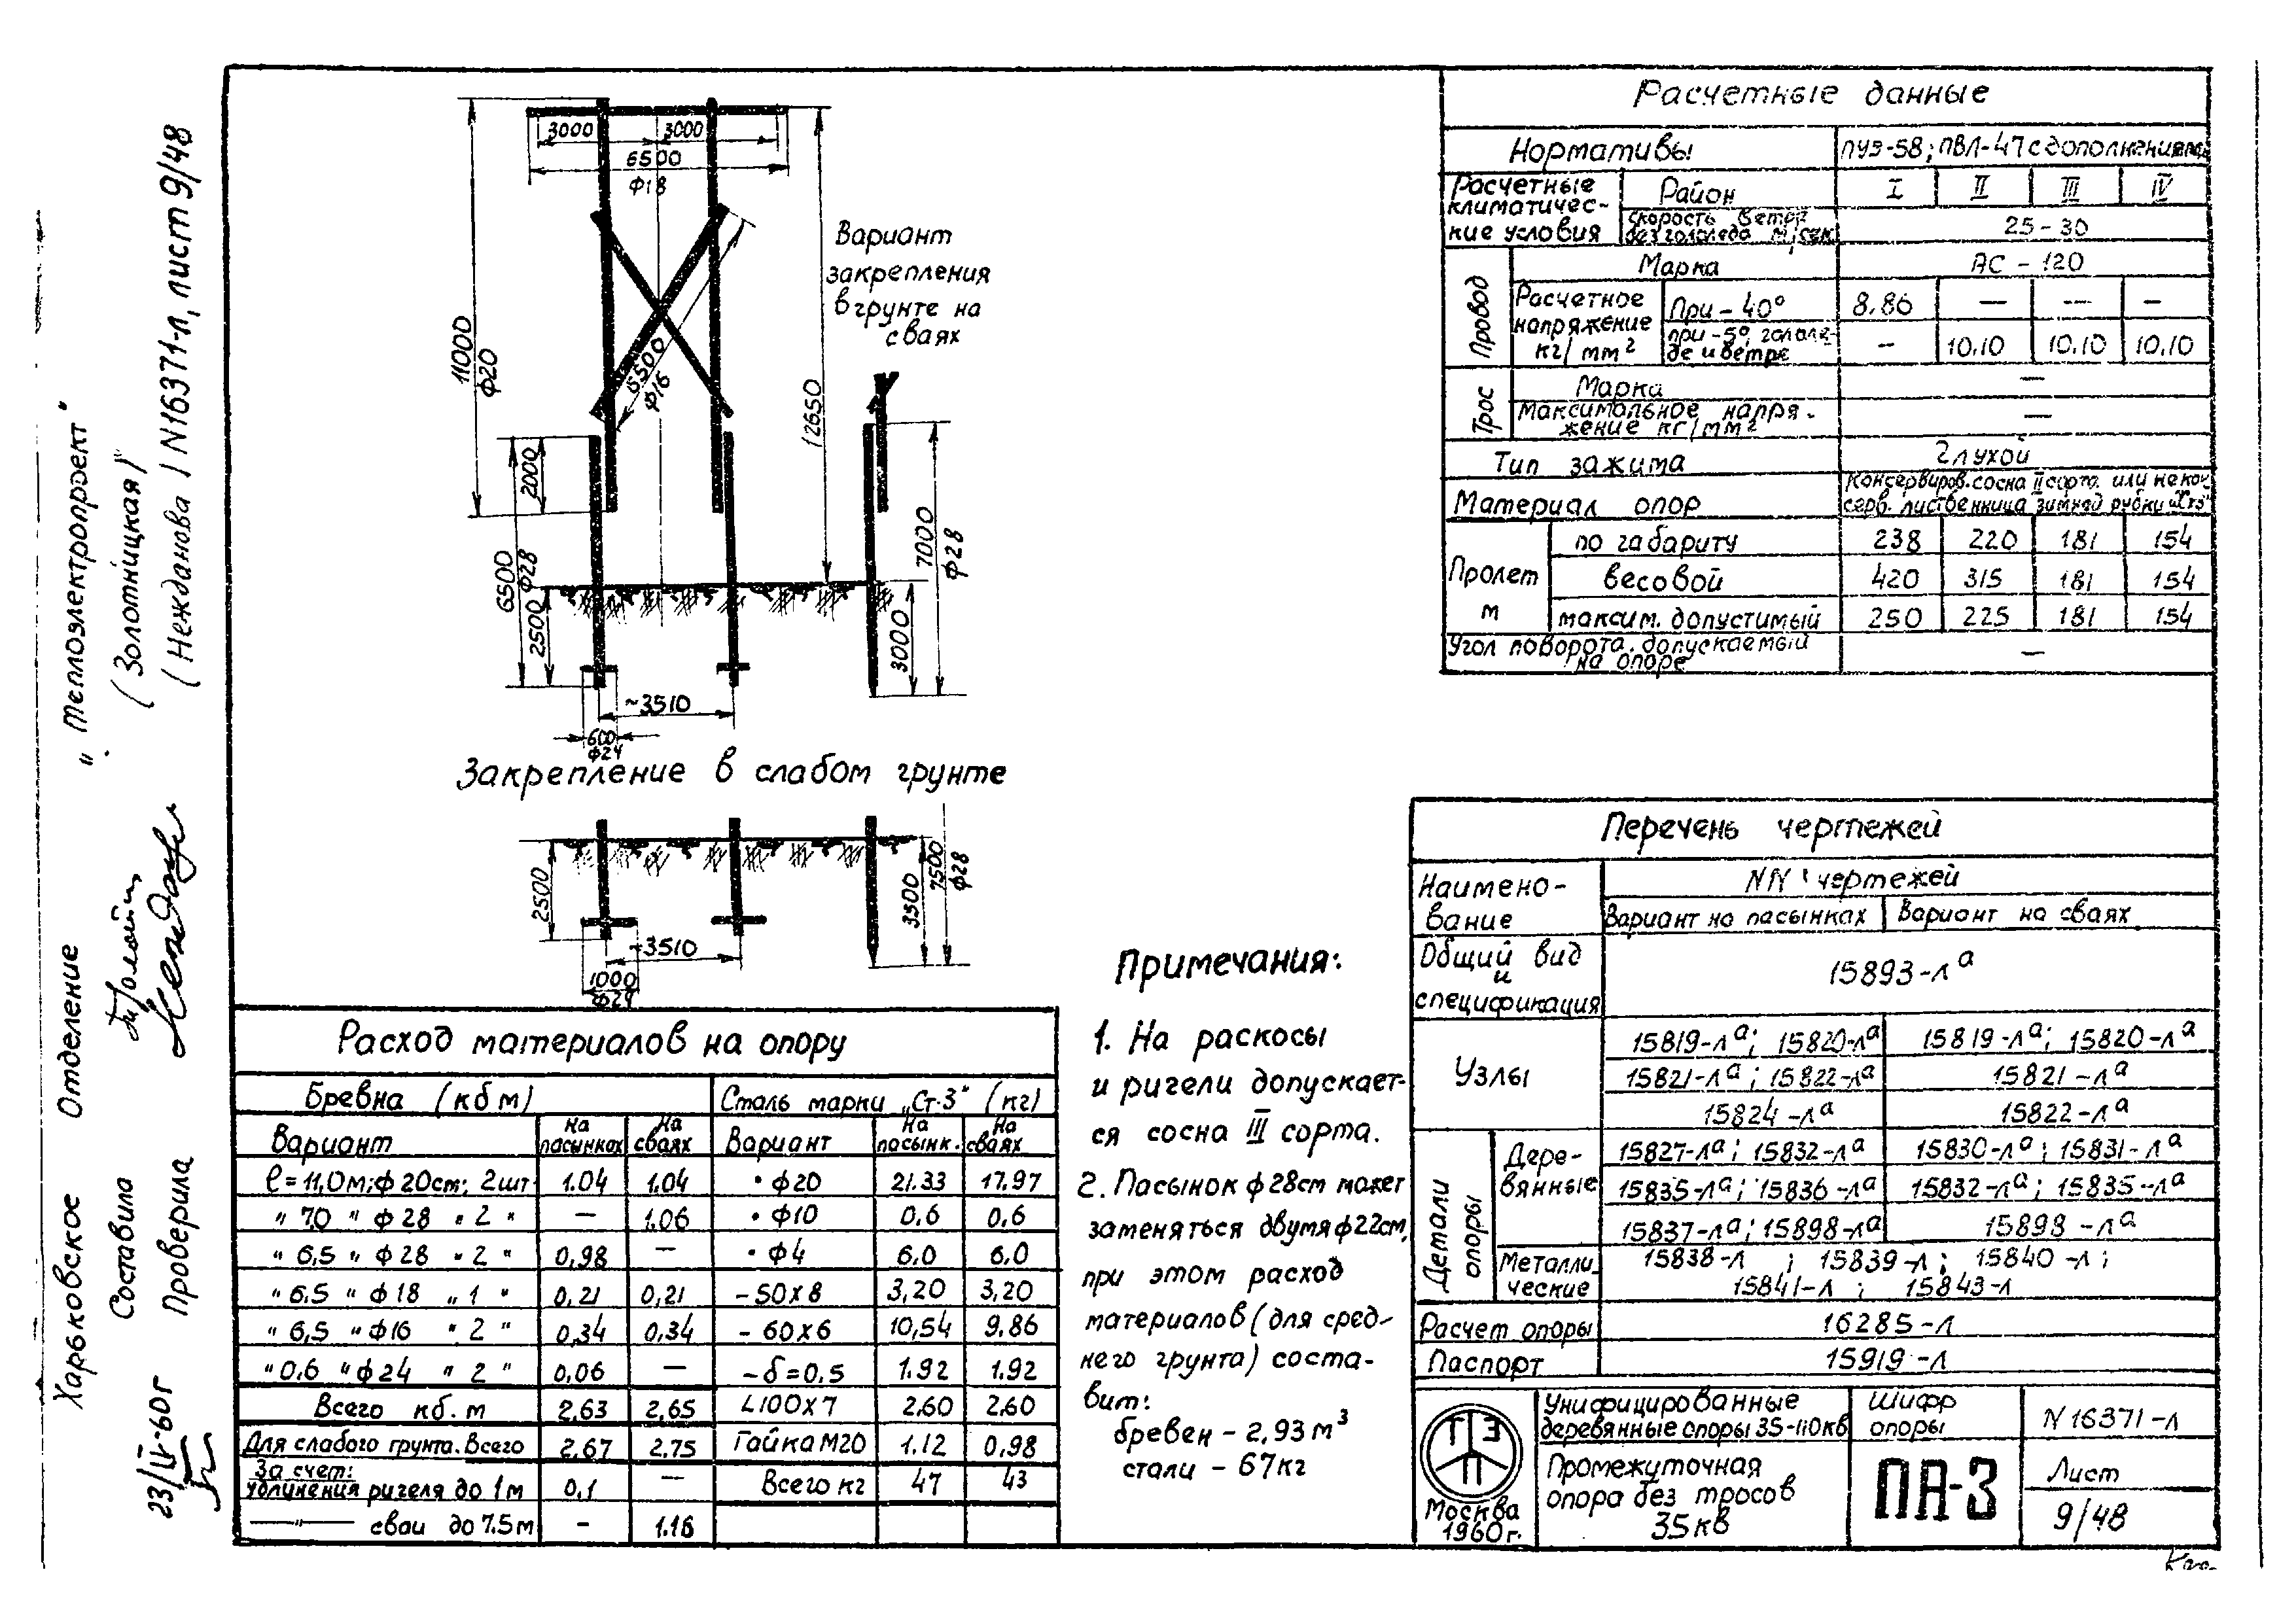 Харьковское Отделение "Теплоэлектропроект"
Составила (Золотницкая)
Проверила (Нежданова) N16371-л, лист 9/48
23/IV-60г
3000 3000
6500
ф18
11000
ф20
5500
ф16
12650
2000
6500
ф28
2500
7000
ф28
3000
~3510
600
ф24
Вариант
закрепления
в грунте на
сваях
Закрепление в слабом грунте
2500
~3510
1000
ф24
3500
7500
ф28
Расход материалов на опору
Бревна (кбм) Сталь марки „Ст-3" (кг)
Вариант На пасынках На сваях Вариант На пасынк. На сваях
ℓ=11,0м; ф20см; 2шт 1.04 1.04 • ф20 21.33 17.97
" 7.0 " ф28 " 2 " — 1.06 • ф10 0.6 0.6
" 6,5 " ф28 " 2 " 0,98 — • ф4 6.0 6.0
" 6.5 " ф18 " 1 " 0,21 0,21 -50x8 3,20 3,20
" 6,5 " ф16 " 2 " 0,34 0,34 -60x6 10,54 9.86
" 0.6 " ф24 " 2 " 0,06 — -δ=0,5 1.92 1.92
Всего кб.м 2.63 2.65 L100x7 2.60 2.60
Для слабого грунта. Всего 2.67 2.75 Гайка М20 1.12 0.98
За счет:
удлинения ригеля до 1м 0,1 — Всего кг 47 43
—"— сваи до 7.5м - 1.16
Примечания:
1. На раскосы
и ригели допускает-
ся сосна III сорта.
2. Пасынок ф28см может
заменяться двумя ф22см,
при этом расход
материалов (для сред-
него грунта) соста-
вит:
бревен - 2,93 м³
стали - 67кг
Расчетные данные
Нормативы ПУЭ-58; ПВЛ-47 с дополнениями
Расчетные климатичес-кие условия Район I II III IV
Скорость ветра без гололеда м/сек 25-30
Провод Марка АС-120
Расчетное напряжение кг/мм² При -40° 8.86 — — —
при -5°, гололе-де и ветре — 10.10 10.10 10.10
Трос Марка —
Максимальное напря-жение кг/мм² —
Тип зажима Глухой
Материал опор Консервиров. сосна II сорта или некон
серв. лиственница зимней рубки
Пролет м по габариту 238 220 181 154
весовой 420 315 181 154
максим. допустимый 250 225 181 154
Угол поворота, допускаемый на опоре —
Перечень чертежей
Наимено-вание NN чертежей
Вариант на пасынках Вариант на сваях
Общий вид и спецификация 15893-лᵃ
Узлы 15819-лᵃ; 15820-лᵃ 15819-лᵃ; 15820-лᵃ
15821-лᵃ; 15822-лᵃ 15821-лᵃ
15824-лᵃ 15822-лᵃ
Детали опоры Дере-вянные 15827-лᵃ; 15832-лᵃ 15830-лᵃ; 15831-лᵃ
15835-лᵃ; 15836-лᵃ 15832-лᵃ; 15835-лᵃ
15837-лᵃ; 15898-лᵃ 15898-лᵃ
Металли-ческие 15838-л ; 15839-л; 15840-л;
15841-л ; 15843-л
Расчет опоры 16285-л
Паспорт 15919-л
ТЭ
Москва
1960г.
Унифицированные
деревянные опоры 35-110кв
Промежуточная
опора без тросов
35кв
Шифр
опоры
ПА-3
N 16371-л
Лист
9/48